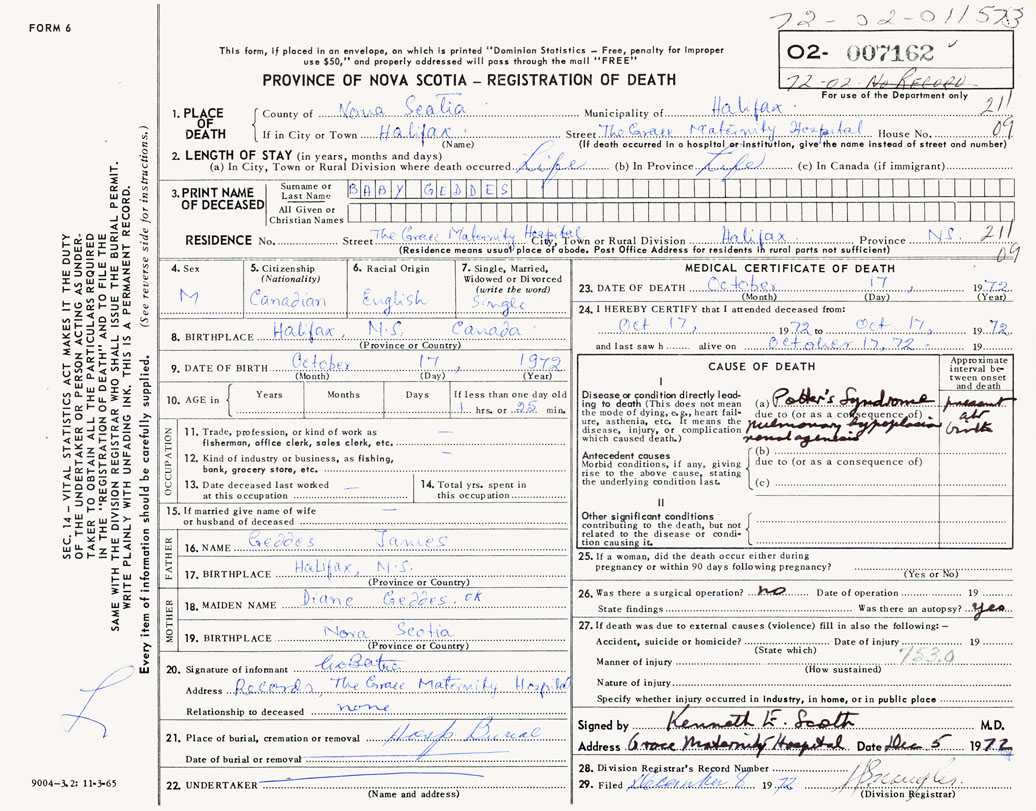 FORM 6
72-02-011573
This form, if placed in an envelope, on which is printed "Dominion Statistics – Free, penalty for improper
use $50," and properly addressed will pass through the mail "FREE"
PROVINCE OF NOVA SCOTIA – REGISTRATION OF DEATH
02- 007162
72-02- No Record
For use of the Department only
1. PLACE OF DEATH
County of Nova Scotia Municipality of Halifax 211
If in City or Town Halifax Street The Grace Maternity Hospital House No. 09
(Name) (If death occurred in a hospital or institution, give the name instead of street and number)
2. LENGTH OF STAY (in years, months and days)
(a) In City, Town or Rural Division where death occurred Life (b) In Province Life (c) In Canada (if immigrant)
3. PRINT NAME OF DECEASED
Surname or Last Name BABY GEDDES
All Given or Christian Names
RESIDENCE No. Street The Grace Maternity Hospital City, Town or Rural Division Halifax Province N.S. 211
(Residence means usual place of abode. Post Office Address for residents in rural parts not sufficient) 09
4. Sex
M
5. Citizenship
(Nationality)
Canadian
6. Racial Origin
English
7. Single, Married,
Widowed or Divorced
(write the word)
Single
8. BIRTHPLACE Halifax, N.S. Canada
(Province or Country)
9. DATE OF BIRTH October 17, 1972
(Month) (Day) (Year)
10. AGE in Years Months Days If less than one day old
1 hrs. or 25 min.
OCCUPATION
11. Trade, profession, or kind of work as
fisherman, office clerk, sales clerk, etc. —
12. Kind of industry or business, as fishing,
bank, grocery store, etc. —
13. Date deceased last worked
at this occupation —
14. Total yrs. spent in
this occupation
15. If married give name of wife
or husband of deceased —
FATHER
16. NAME Geddes James
17. BIRTHPLACE Halifax, N.S.
(Province or Country)
MOTHER
18. MAIDEN NAME Diane Geddes. OK
19. BIRTHPLACE Nova Scotia
(Province or Country)
20. Signature of informant
Address Records, The Grace Maternity Hospital
Relationship to deceased none
21. Place of burial, cremation or removal Hosp Burial
Date of burial or removal
22. UNDERTAKER
(Name and address)
MEDICAL CERTIFICATE OF DEATH
23. DATE OF DEATH October 17, 1972
(Month) (Day) (Year)
24. I HEREBY CERTIFY that I attended deceased from:
Oct 17, 1972 to Oct 17, 1972
and last saw h alive on October 17, 72 19
CAUSE OF DEATH
Approximate
interval be-
tween onset
and death
I
Disease or condition directly lead-
ing to death (This does not mean
the mode of dying, e.g., heart fail-
ure, asthenia, etc. It means the
disease, injury, or complication
which caused death.)
(a) Potter's Syndrome present
due to (or as a consequence of) at
pulmonary hypoplasia birth
renal agenesis
Antecedent causes
Morbid conditions, if any, giving
rise to the above cause, stating
the underlying condition last.
(b)
due to (or as a consequence of)
(c)
II
Other significant conditions
contributing to the death, but not
related to the disease or condi-
tion causing it.
25. If a woman, did the death occur either during
pregnancy or within 90 days following pregnancy?
(Yes or No)
26. Was there a surgical operation? no Date of operation 19
State findings Was there an autopsy? yes
27. If death was due to external causes (violence) fill in also the following: –
Accident, suicide or homicide? Date of injury 19
(State which)
Manner of injury 753.0
(How sustained)
Nature of injury
Specify whether injury occurred in industry, in home, or in public place
Signed by Kenneth E. Scott M.D.
Address Grace Maternity Hospital Date Dec 5 1972
28. Division Registrar's Record Number
29. Filed December 8 1972
(Division Registrar)
SEC. 14 – VITAL STATISTICS ACT MAKES IT THE DUTY
OF THE UNDERTAKER OR PERSON ACTING AS UNDER-
TAKER TO OBTAIN ALL THE PARTICULARS REQUIRED
IN THE "REGISTRATION OF DEATH" AND TO FILE THE
SAME WITH THE DIVISION REGISTRAR WHO SHALL ISSUE THE BURIAL PERMIT.
WRITE PLAINLY WITH UNFADING INK. THIS IS A PERMANENT RECORD.
Every item of information should be carefully supplied. (See reverse side for instructions.)
9004-3.2: 11-3-65